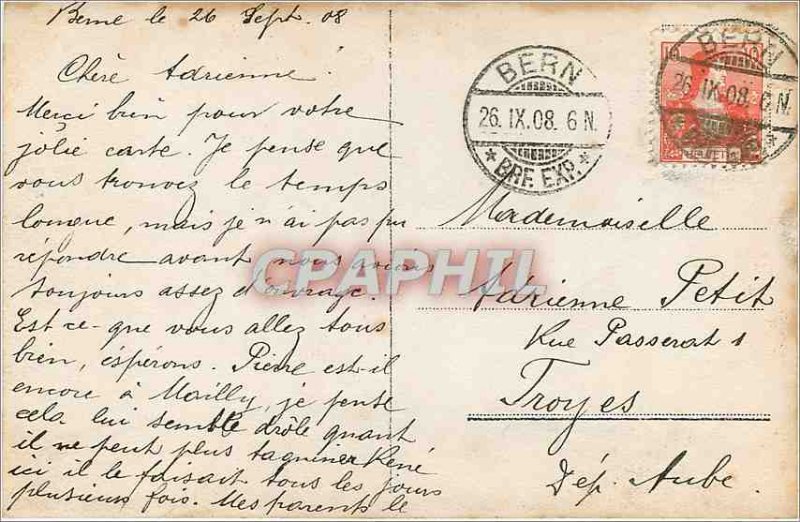 Berne le 26 Sept. 08
Chère Adrienne!
Merci bien pour votre
jolie carte. Je pense que
vous trouvez le temps
longue, mais je n'ai pas pu
répondre avant nous avions
toujours assez d'ouvrage.
Est-ce-que vous allez tous
bien, espérons. Pierre est-il
encore à Mailly, je pense
cela lui semble drôle quant
il ne peut plus taquiner René
ici il le faisait tous les jours
plusieurs fois. Mes parents le
BERN
26. IX. 08. 6 N.
BRF. EXP.
BERN
26. IX. 08. 6 N.
Mademoiselle
Adrienne Petit
Rue Passerat 1
Troyes
Dép. Aube.
CPAPHIL